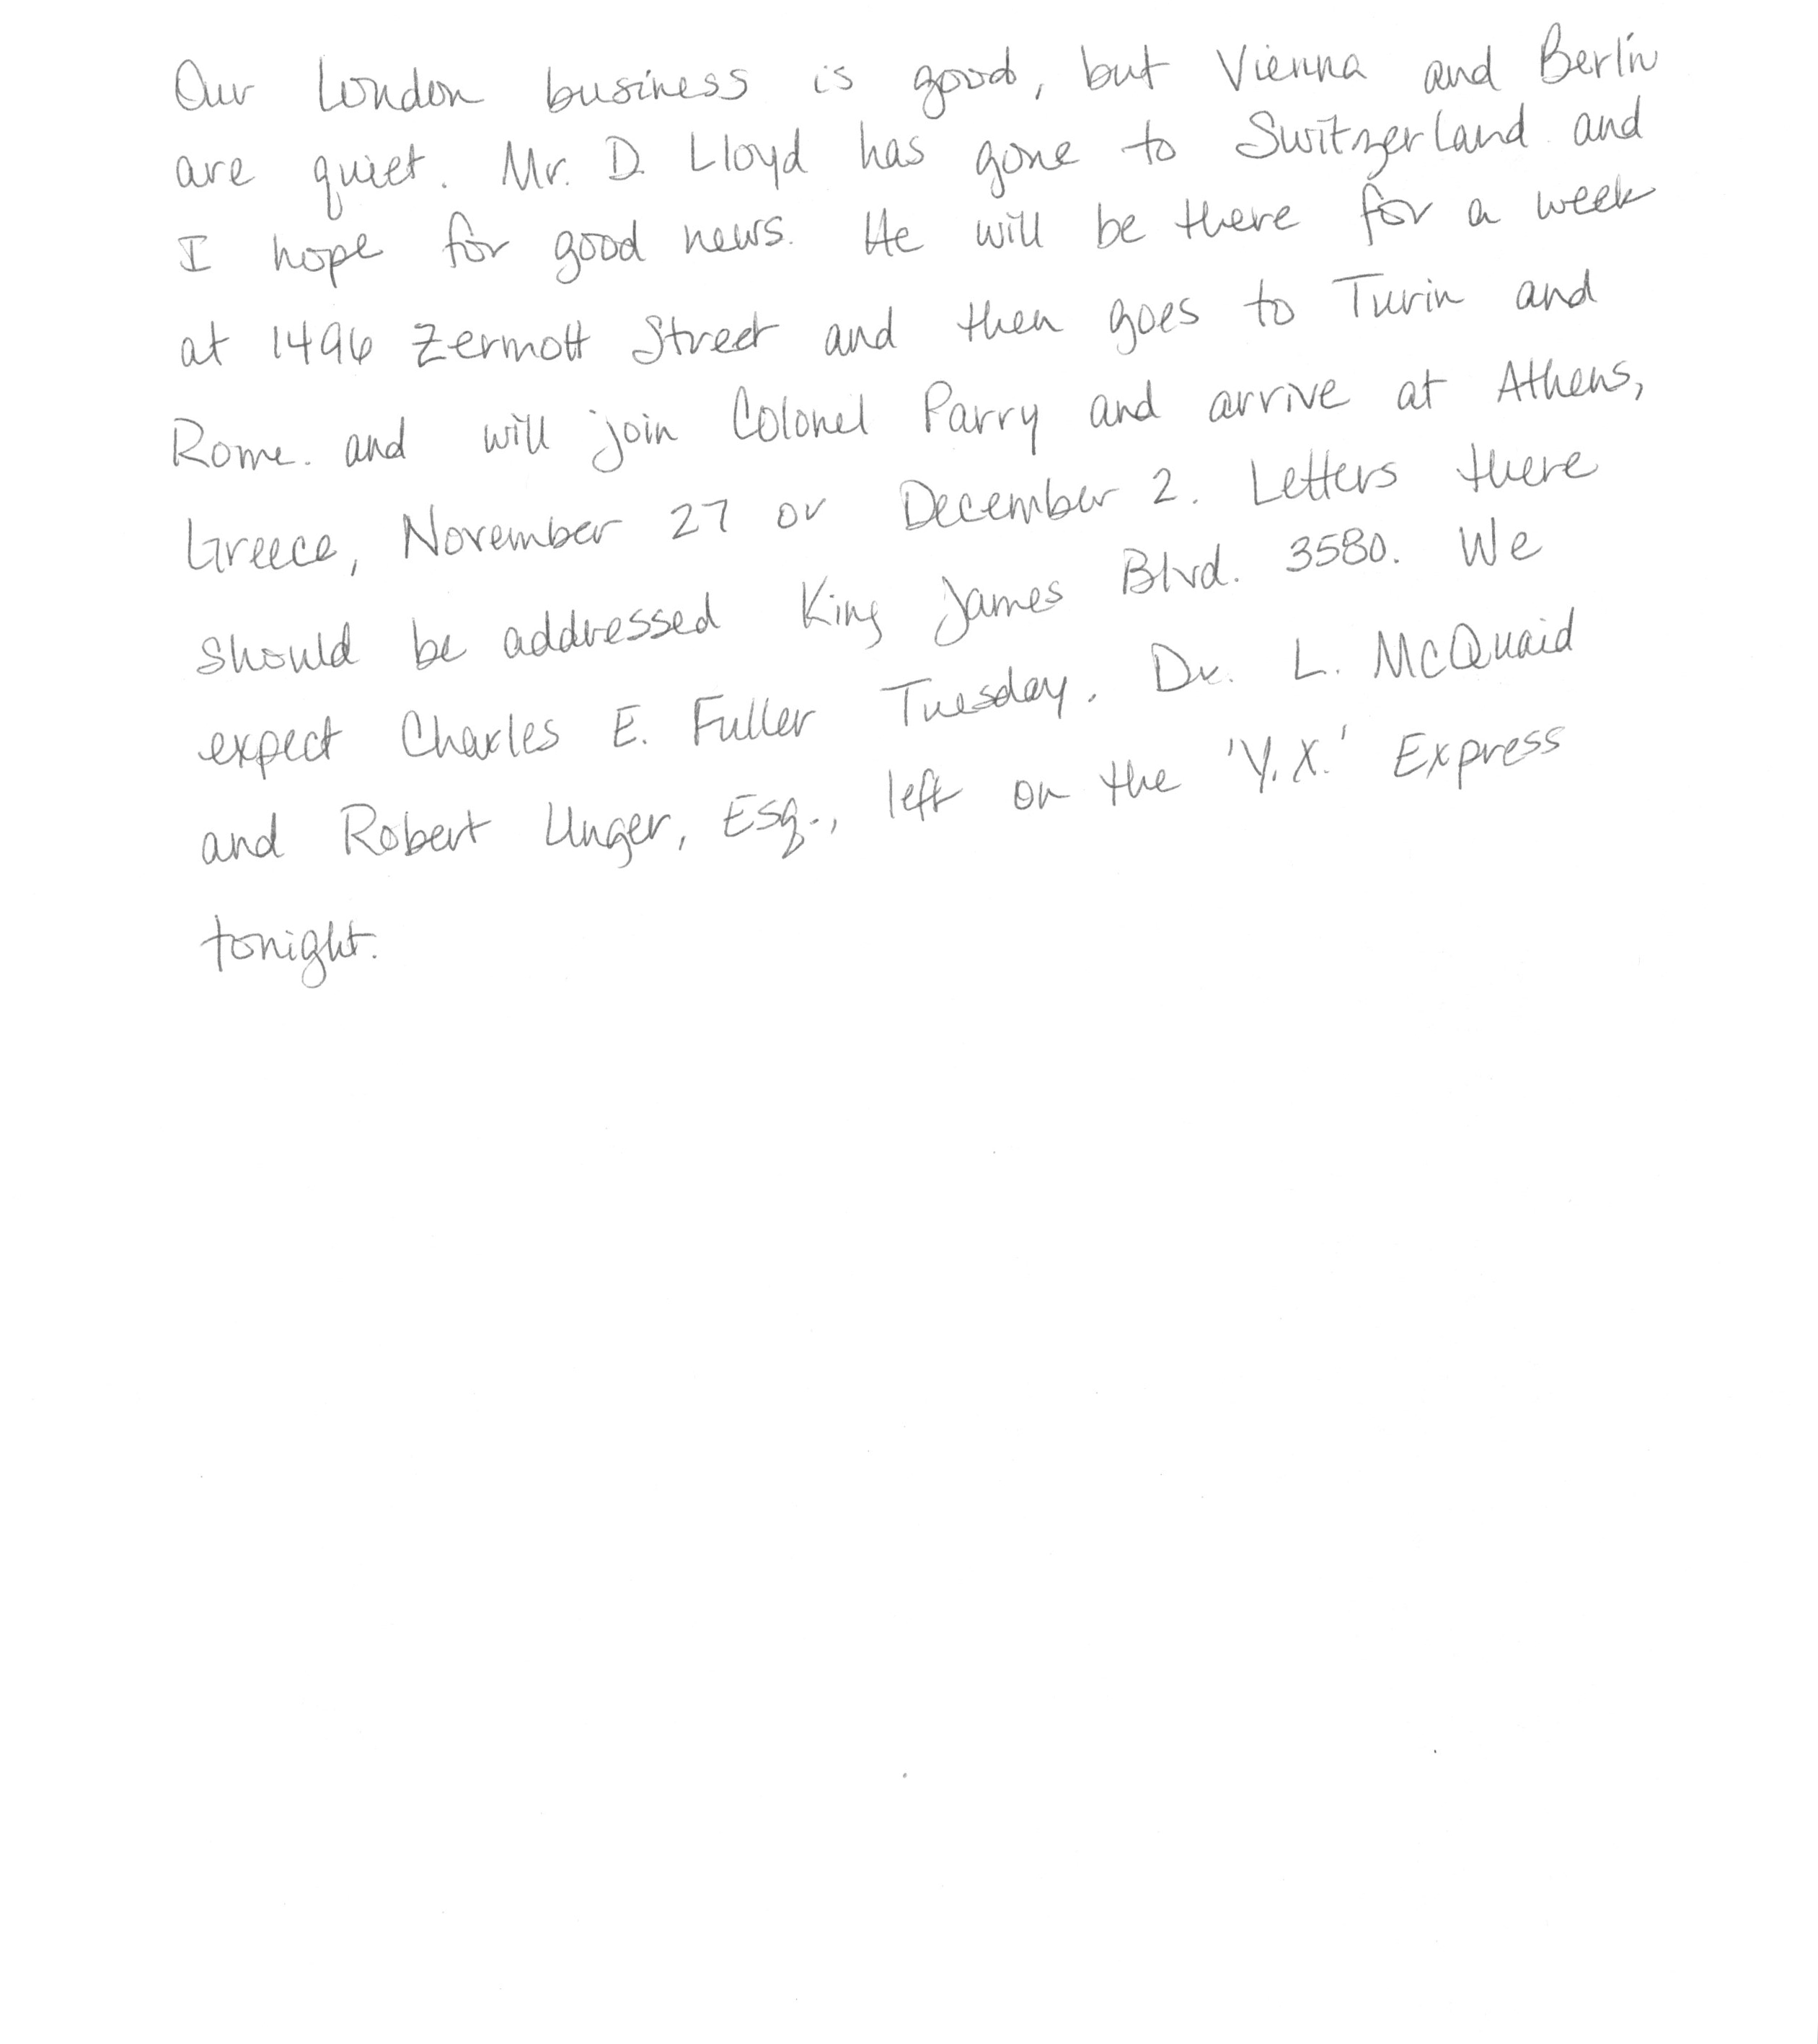 Our London business is good, but Vienna and Berlin
are quiet. Mr. D. Lloyd has gone to Switzerland and
I hope for good news. He will be there for a week
at 1496 Zermott Street and then goes to Turin and
Rome. and will join Colonel Parry and arrive at Athens,
Greece, November 27 or December 2. Letters there
should be addressed King James Blvd. 3580. We
expect Charles E. Fuller Tuesday. Dr. L. McQuaid
and Robert Unger, Esq., left on the 'Y.X.' Express
tonight.